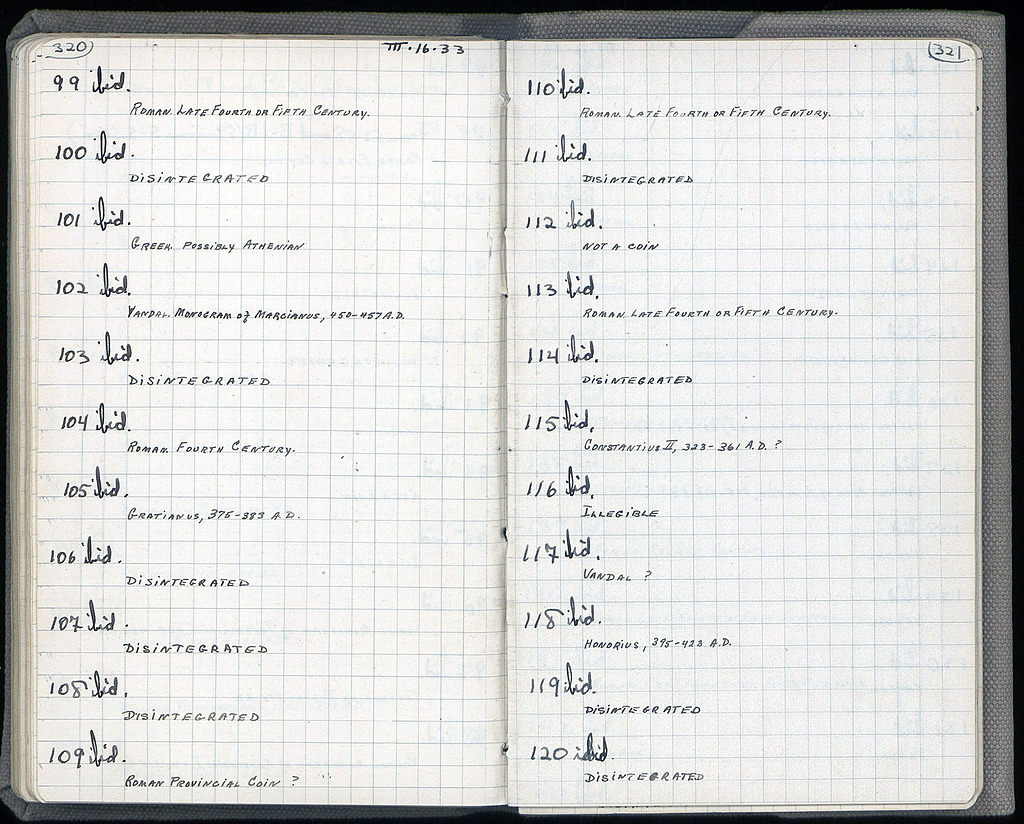 320
III·16·33
99 ibid.
Roman. Late Fourth or Fifth Century.
100 ibid.
Disintegrated
101 ibid.
Greek. Possibly Athenian
102 ibid.
Vandal. Monogram of Marcianus, 450-457 A.D.
103 ibid.
Disintegrated
104 ibid.
Roman. Fourth Century.
105 ibid.
Gratianus, 375-383 A.D.
106 ibid.
Disintegrated
107 ibid.
Disintegrated
108 ibid.
Disintegrated
109 ibid.
Roman Provincial Coin ?
321
110 ibid.
Roman. Late Fourth or Fifth Century.
111 ibid.
Disintegrated
112 ibid.
Not a coin
113 ibid.
Roman. Late Fourth or Fifth Century.
114 ibid.
Disintegrated
115 ibid.
Constantius II, 323-361 A.D. ?
116 ibid.
Illegible
117 ibid.
Vandal ?
118 ibid.
Honorius, 395-423 A.D.
119 ibid.
Disintegrated
120 ibid.
Disintegrated